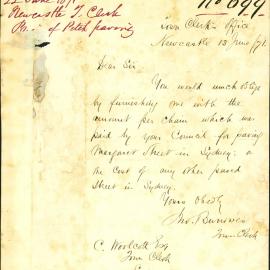 22 June 1871
Newcastle T. Clerk
of Pitch paving
No 699
Town Clerk's Office
Newcastle 13 June /71
Dear Sir
You would much oblige
by furnishing me with the
amount per chain which was
paid by your Council for paving
Margaret Street in Sydney, or
the cost of any other paved
Street in Sydney.
Yours Obedly
Town Clerk
C. Woolcott Esq
Town Clerk